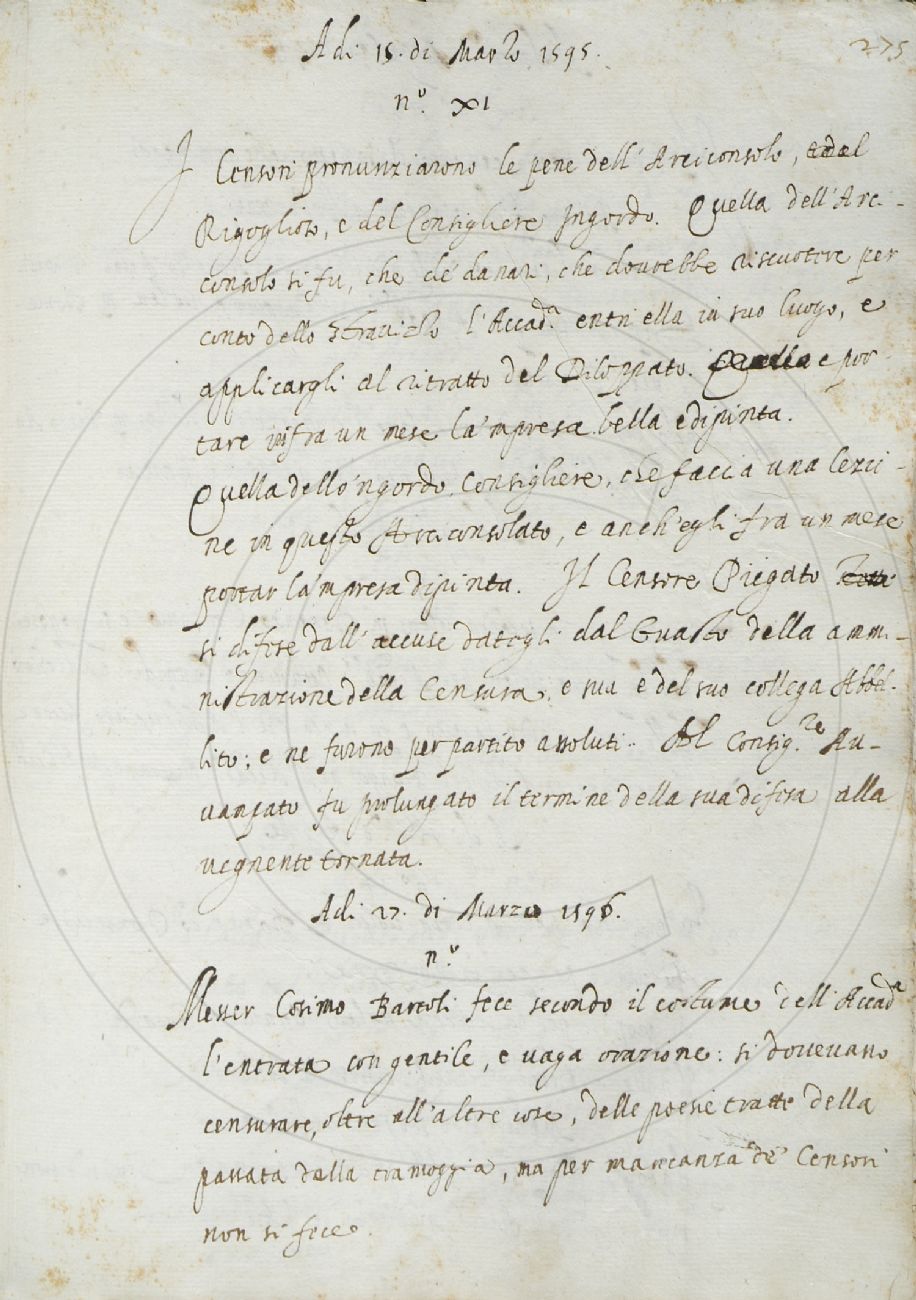 275
Adi 15. di Marzo 1595.
n.º XI
I Censori pronunziarono le pene dell'Arciconsolo, e del
Rigoglioso, e del Consigliere Ingordo. Quella dell'Arci-
consolo si fu, che de' danari, che dovrebbe riscuotere per
conto dello stravizzo l'Accad.ª entri ella in suo luogo, e
applicargli al ritratto del Diloppato. e por-
tare infra un mese la 'mpresa bella e dipinta.
Quella dello 'ngordo Consigliere, che faccia una Lezzi-
ne in questo Arciconsolato, e anch'egli fra un mese
portar la 'mpresa dipinta. Il Censore Piegato
si difese dall'accuse dategli dal Guasto della ammi-
nistrazione della Censura, e sua e del suo collega Abbel-
lito; e ne furono per partito assoluti. Al Consig.re Av-
vanzato fu prolungato il termine della sua difesa alla
vegnente tornata.
Adi 27. di Marzo 1596.
n.º
Messer Cosimo Bartoli fece secondo il costume dell'Accad.ª
l'entrata con gentile, e vaga orazione: si dovevano
censurare, oltre all'altre cose, delle poesie tratte della
passata dalla tramoggia, ma per mancanza de' Censori
non si fece.